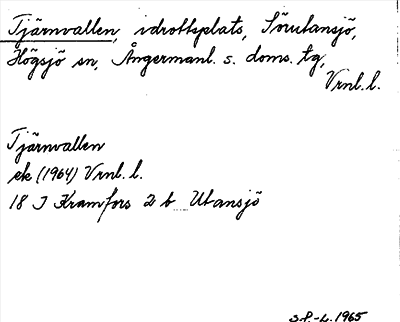 Tjärnvallen, idrottsplats, Sörutansjö,
Högsjö sn, Ångermanl. s. doms. tg,
Vrnl. l.
Tjärnvallen
ek (1964) Vrnl. l.
18 I Kramfors 2 b Utansjö
1965